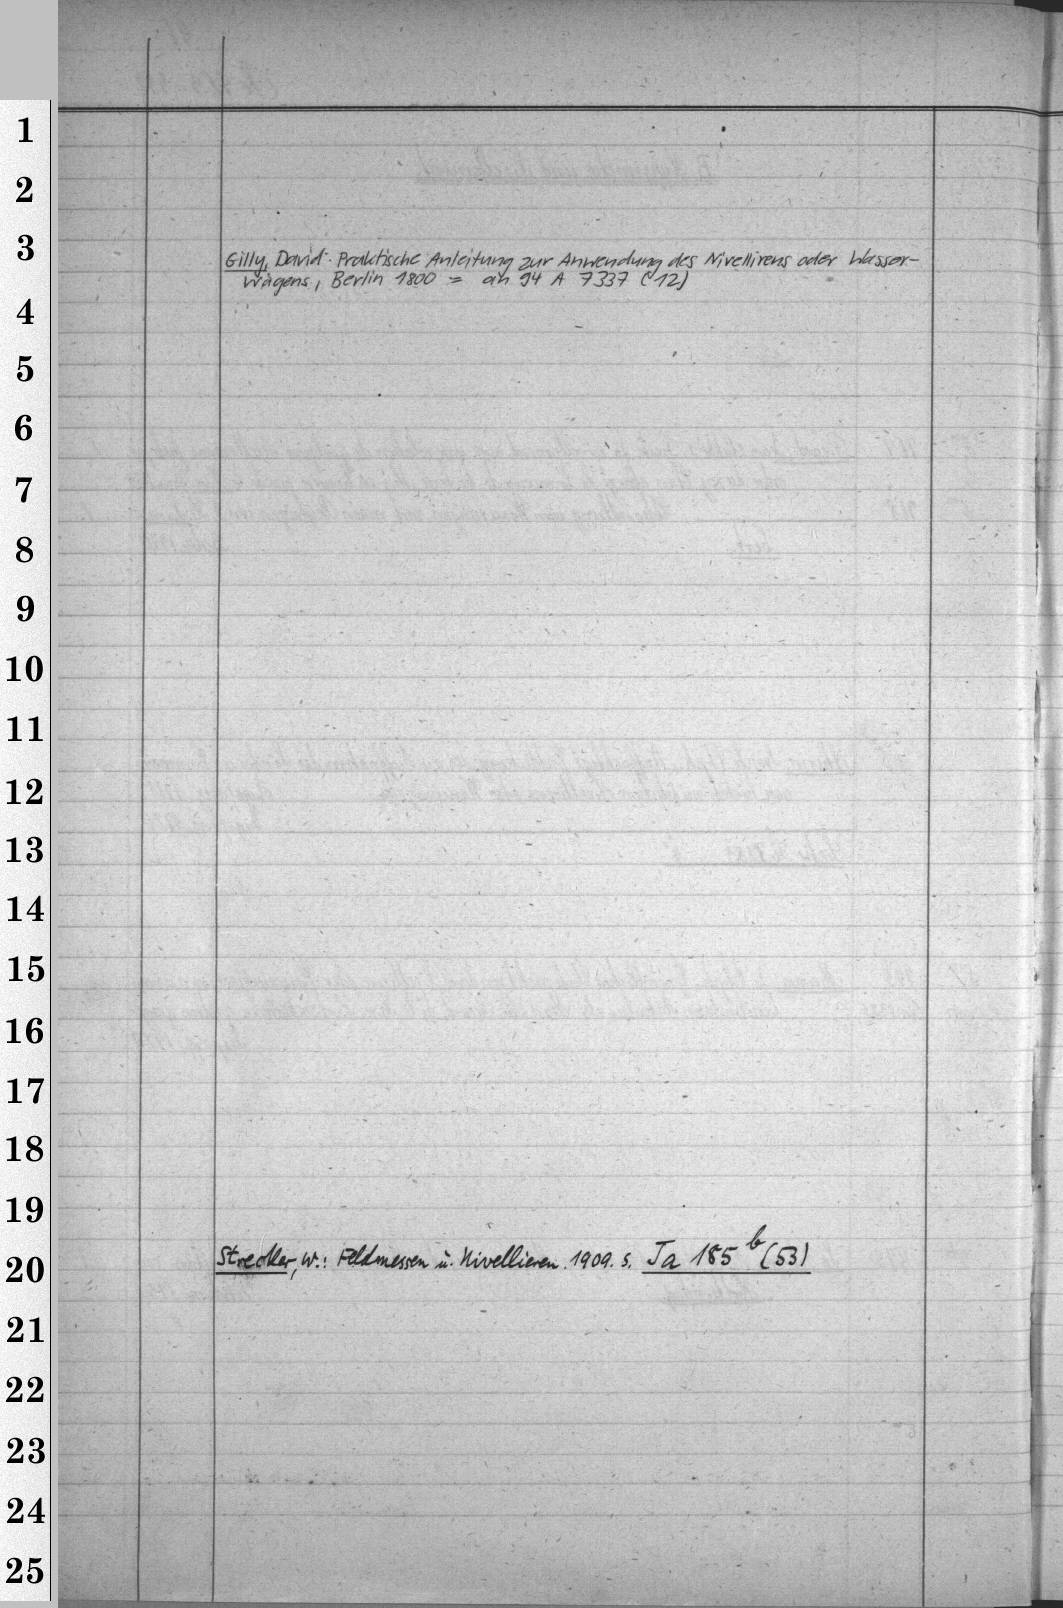 1
2
3
Gilly, David: Praktische Anleitung zur Anwendung des Nivellirens oder Wasser-
wägens, Berlin 1800 = an 94 A 7337 (12)
4
5
6
7
8
9
10
11
12
13
14
15
16
17
18
19
Strecker, W.: Feldmessen u. Nivellieren. 1909. s. Ja 185 b (53)
20
21
22
23
24
25